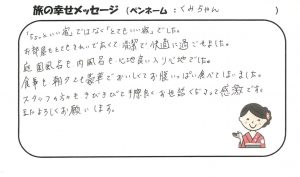 旅の幸せメッセージ（ペンネーム：くみちゃん　）
「ちょっといい宿」ではなく「とてもいい宿」でした。
お部屋もとてもきれいで広くて清潔で快適に過ごせました。
庭園風呂も内風呂も心地良い入り心地でした。
食事も朝夕とも豪華でおいしくてお腹いっぱい食べてしまいました。
スタッフの方々もきびきびして手際良くお世話くださって感激です。
またよろしくお願いします。